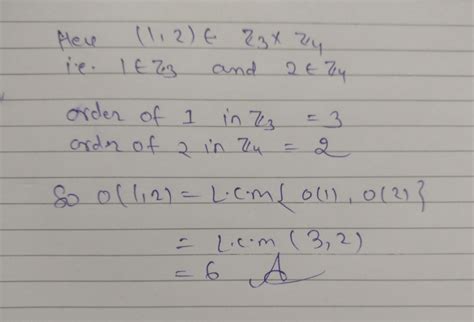 Here (1,2) ∈ Z₃ × Z₄
i.e. 1 ∈ Z₃ and 2 ∈ Z₄
order of 1 in Z₃ = 3
order of 2 in Z₄ = 2
So O(1,2) = L.C.M { O(1), O(2)}
= L.C.M (3,2)
= 6 A